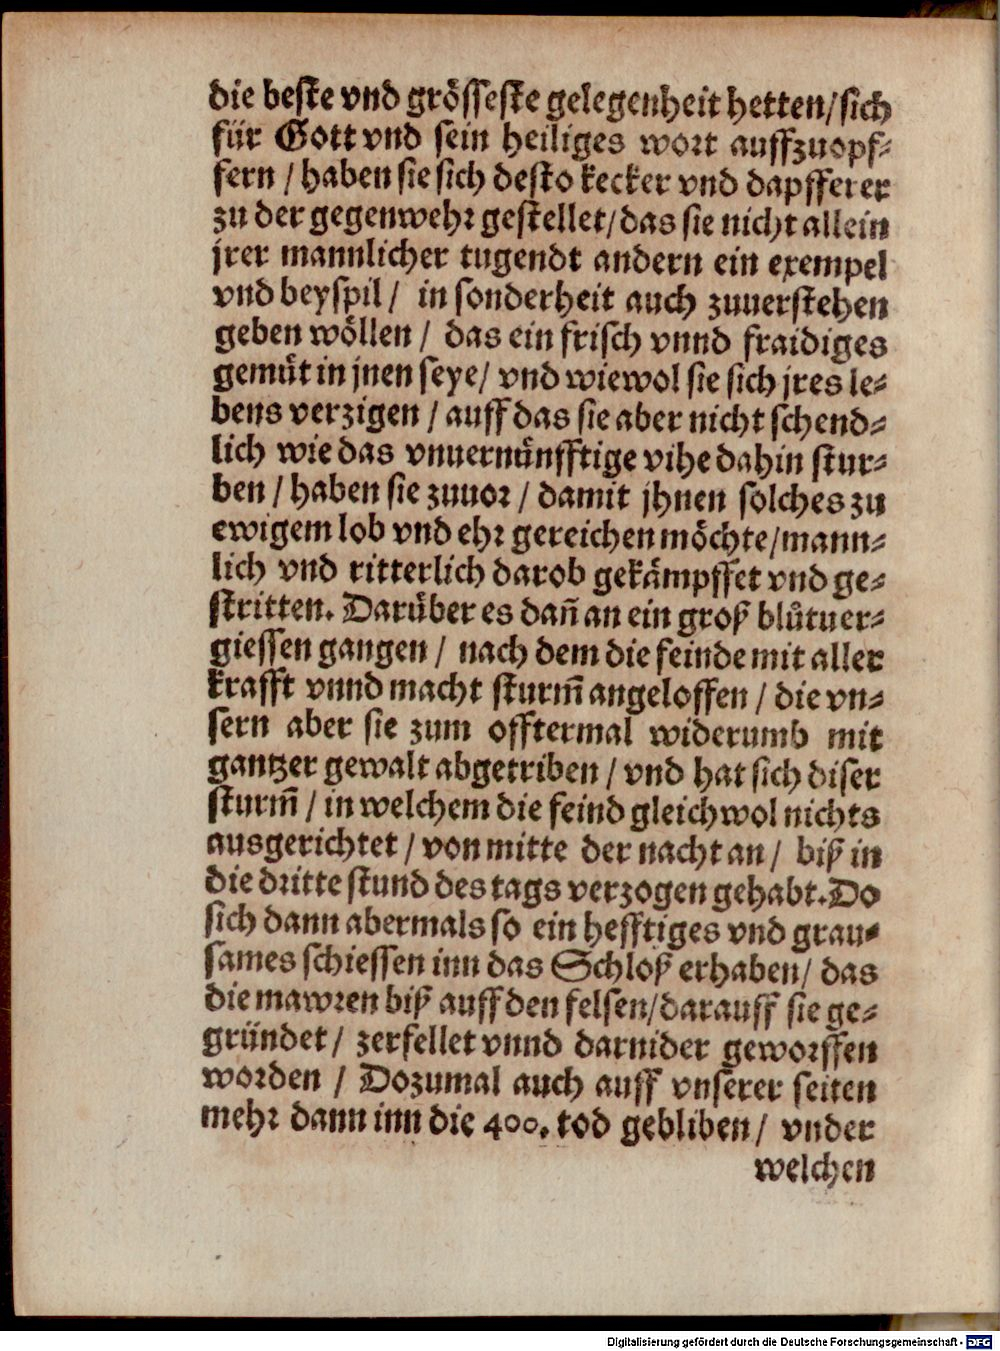 die beste vnd grösseste gelegenheit hetten/ sich
für Gott vnd sein heiliges wort auffzuopf-
fern / haben sie sich desto kecker vnd dapfferer
zu der gegenwehr gestellet/ das sie nicht allein
jrer mannlicher tugendt andern ein exempel
vnd beyspil / in sonderheit auch zuuerstehen
geben wöllen / das ein frisch vnnd fraidiges
gemüt in jnen seye/ vnd wiewol sie sich jres le-
bens verzigen / auff das sie aber nicht schend-
lich wie das vnuernünfftige vihe dahin stur-
ben / haben sie zuuor / damit jhnen solches zu
ewigem lob vnd ehr gereichen möchte/ mann-
lich vnd ritterlich darob gekämpffet vnd ge-
stritten. Darüber es dañ an ein groß blůtuer-
giessen gangen / nach dem die feinde mit aller
krafft vnnd macht sturm̃ angeloffen / die vn-
sern aber sie zum offtermal widerumb mit
gantzer gewalt abgetriben / vnd hat sich diser
sturm̃ / in welchem die feind gleichwol nichts
ausgerichtet / von mitte der nacht an / biß in
die dritte stund des tags verzogen gehabt. Do
sich dann abermals so ein hefftiges vnd grau-
sames schiessen inn das Schloß erhaben/ das
die mawren biß auff den felsen/ darauff sie ge-
gründet / zerfellet vnnd darnider geworffen
worden / Dozumal auch auff vnserer seiten
mehr dann inn die 400. tod gebliben / vnder
welchen
Digitalisierung gefördert durch die Deutsche Forschungsgemeinschaft - DFG